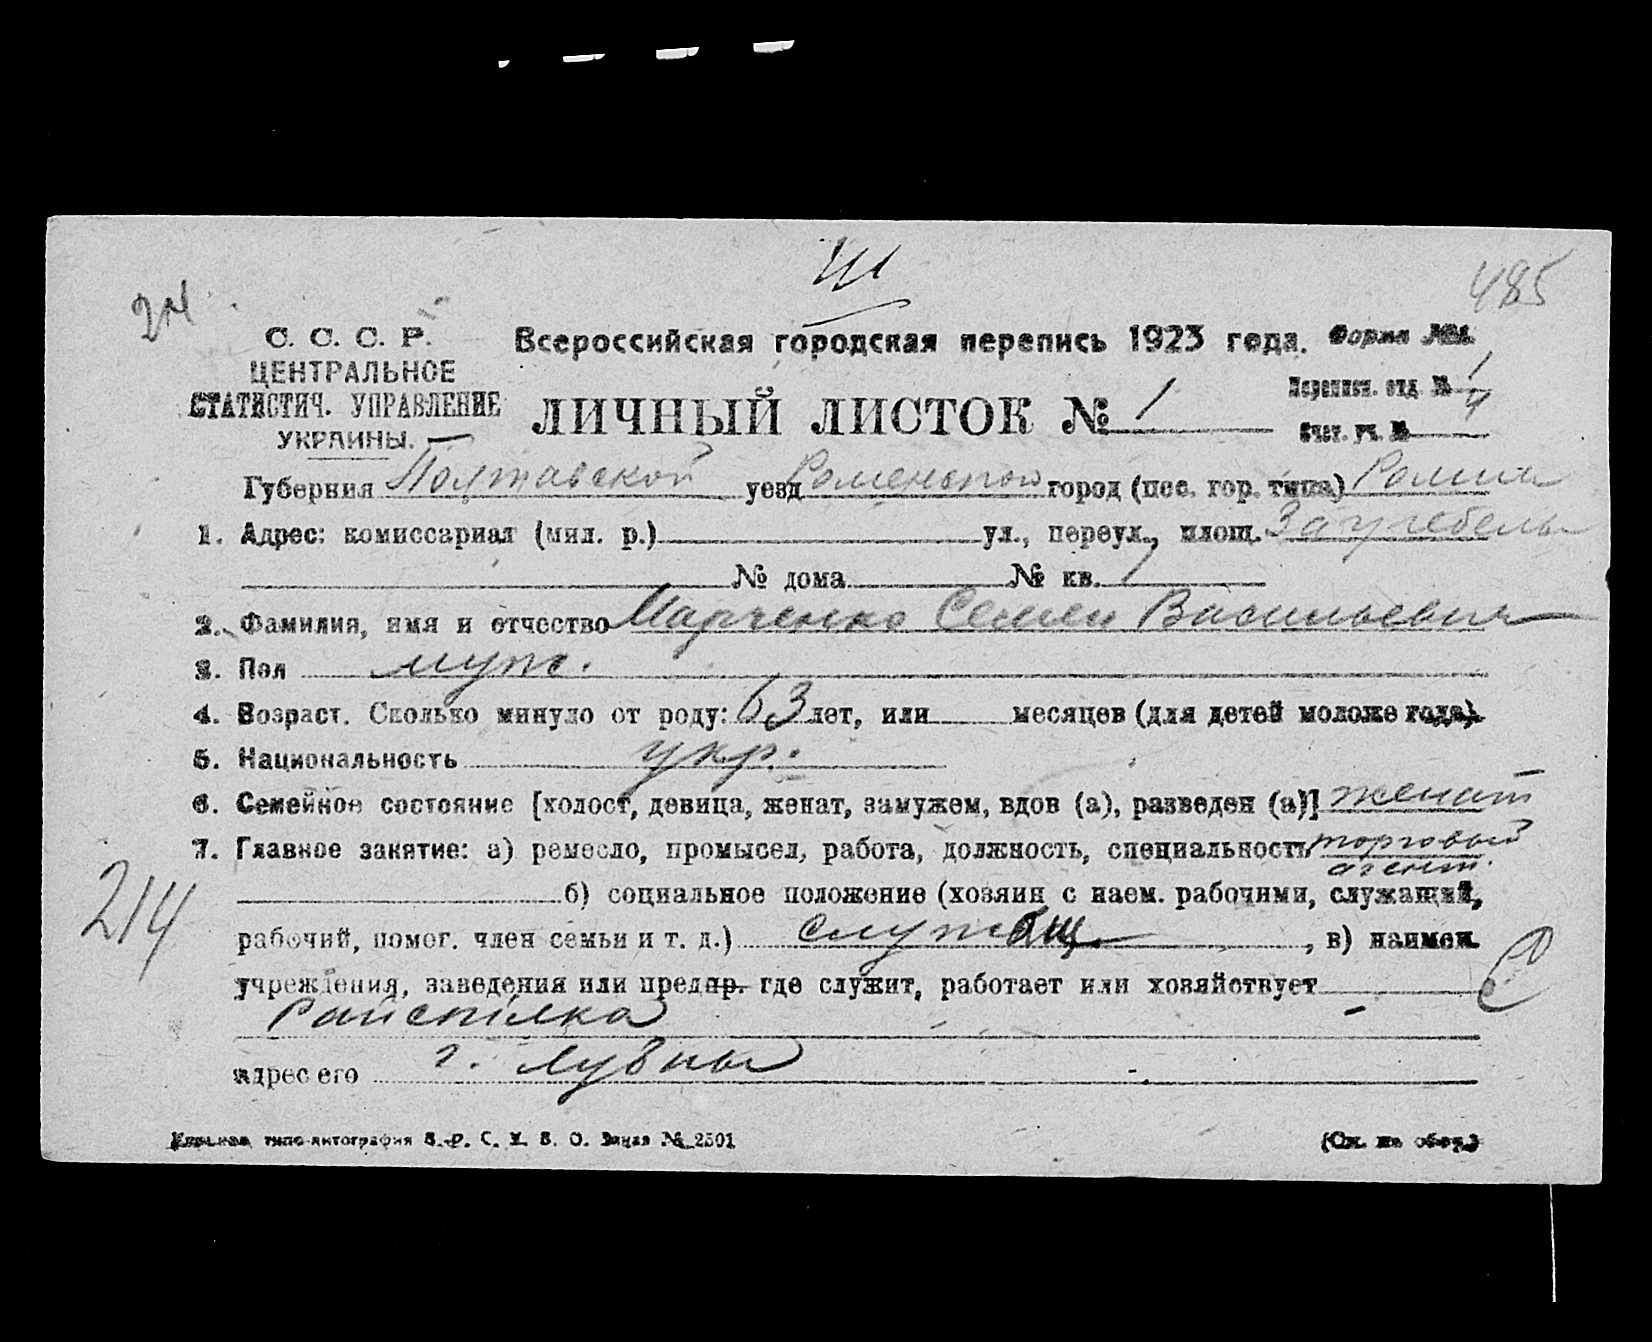 Ш
485
24
С. С. С. Р.
ЦЕНТРАЛЬНОЕ
СТАТИСТИЧ. УПРАВЛЕНИЕ
УКРАИНЫ.
Всероссийская городская перепись 1923 года. Форма №1.
ЛИЧНЫЙ ЛИСТОК № 1
Переписн. отд. № 1
4
Счет. уч. №
Губерния Полтавской уезд Роменской город (пос. гор. типа) Ромны
1. Адрес: комиссариат (мил. р.) ул., переул., площ. Загребелье
№ дома № кв. 1
2. Фамилия, имя и отчество Марченко Семен Васильевич
3. Пол муж.
4. Возраст. Сколько минуло от роду: 63 лет, или месяцев (для детей моложе года).
5. Национальность укр.
6. Семейное состояние [холост, девица, женат, замужем, вдов (а), разведен (а)] женат
7. Главное занятие: а) ремесло, промысел, работа, должность, специальность торговый
агент.
214
б) социальное положение (хозяин с наем. рабочими, служащий,
рабочий, помог. член семьи и т. д.) служащ. , в) наимен.
учреждения, заведения или предпр. где служит, работает или хозяйствует
Райспілка
адрес его г. Лубны
типо-литография Заказ № 2501
(См. на обор.)